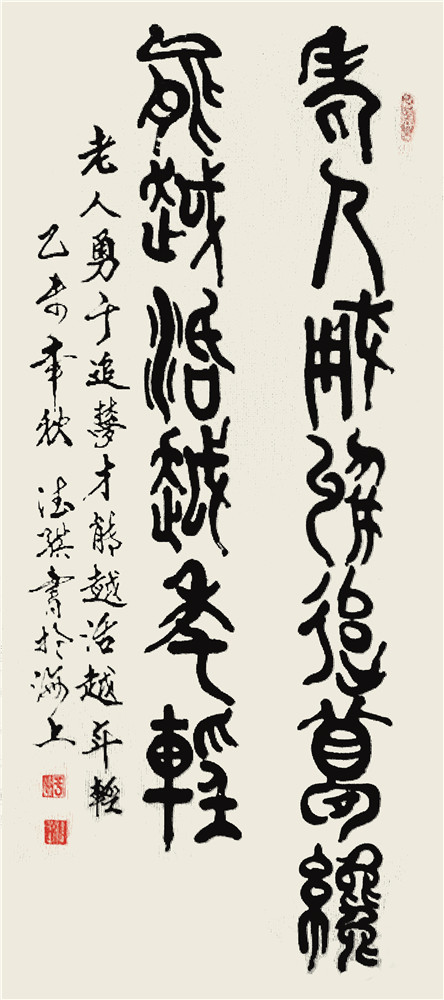 老人勇于追夢纔
能越活越年輕
老人勇于追夢才能越活越年輕
乙未年秋 德書於海上